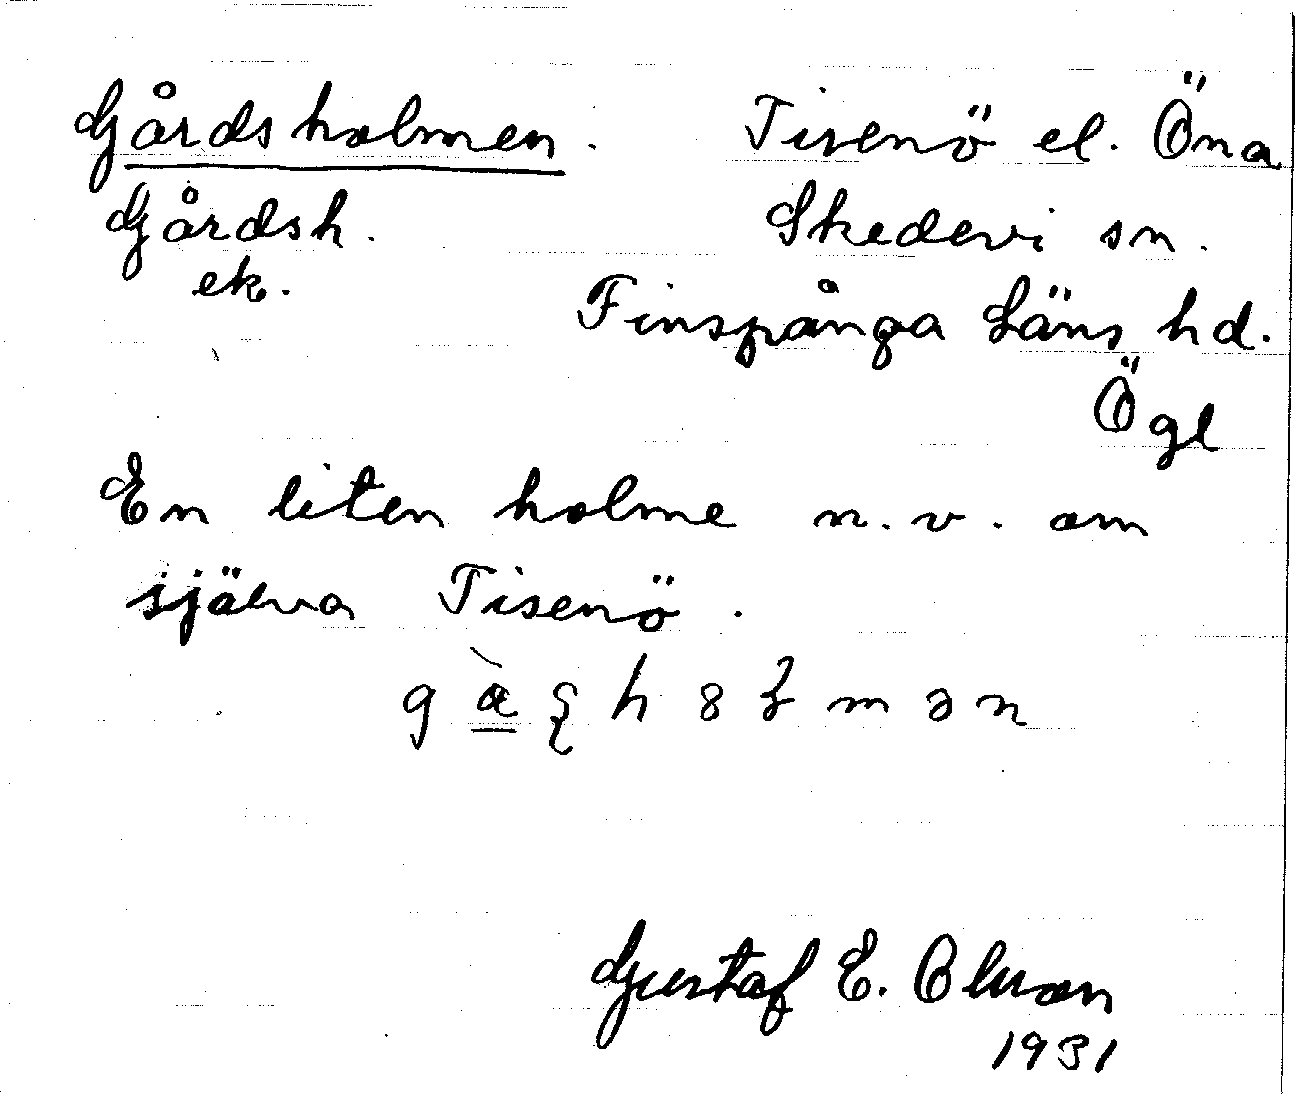 Gårdsholmen. Tisenö el. Öna
Gårdsh. Skedevi sn.
ek. Finspånga Läns hd.
Ögl
En liten holme n.v. om
själva Tisenö.
1931
Gustaf E. Olsson